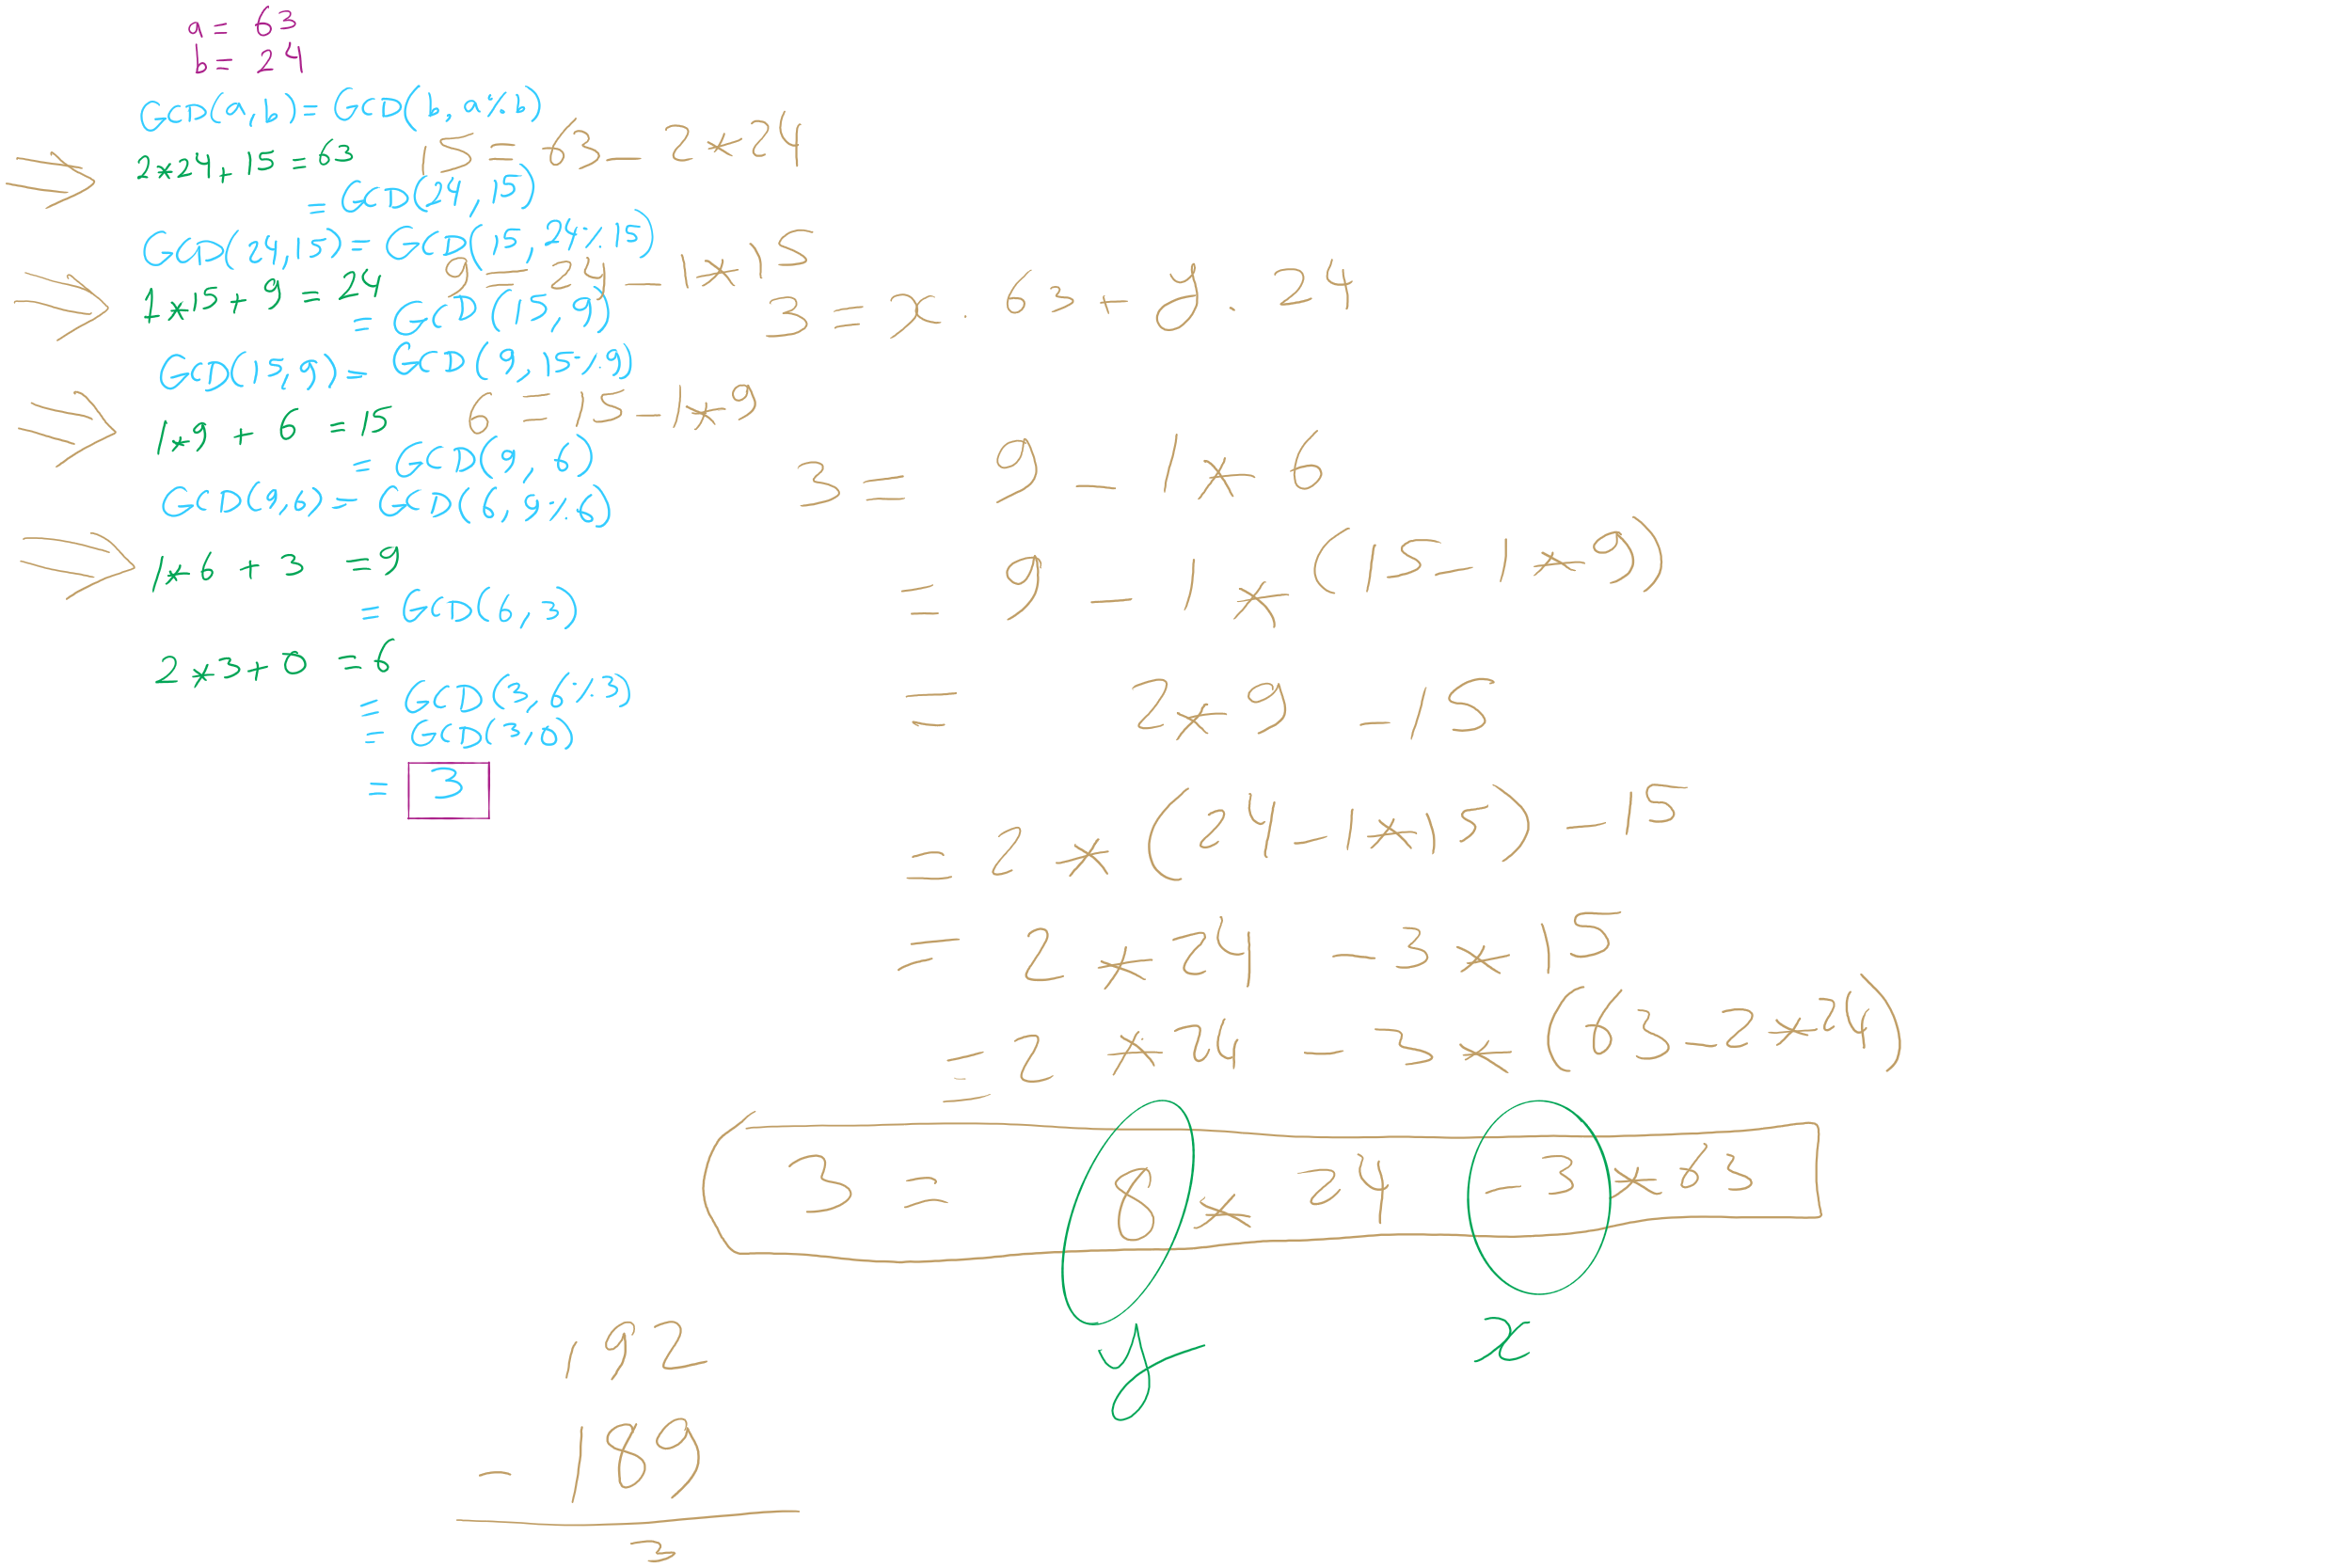 a = 63
b = 24
GCD(a,b) = GCD(b, a%b)
2*24+15 = 63 15 = 63 - 2*24
= GCD(24, 15)
GCD(24,15) = GCD(15, 24%15)
1*15 + 9 = 24 9 = 24 - 1*15
= GCD(15, 9)
3 = x . 63 + y . 24
GCD(15, 9) = GCD(9, 15%9)
1*9 + 6 = 15 6 = 15 - 1*9
= GCD(9, 6)
GCD(9,6) = GCD(6, 9%6)
1*6 + 3 = 9
= GCD(6, 3)
2*3+0 = 6
= GCD(3, 6%3)
= GCD(3,0)
= 3
3 = 9 - 1*6
= 9 - 1 * (15 - 1*9)
= 2*9 - 15
= 2 * (24 - 1*15) - 15
= 2 * 24 - 3 * 15
= 2 * 24 - 3 * (63 - 2*24)
3 = 8 * 24 - 3 * 63
y x
192
- 189
3